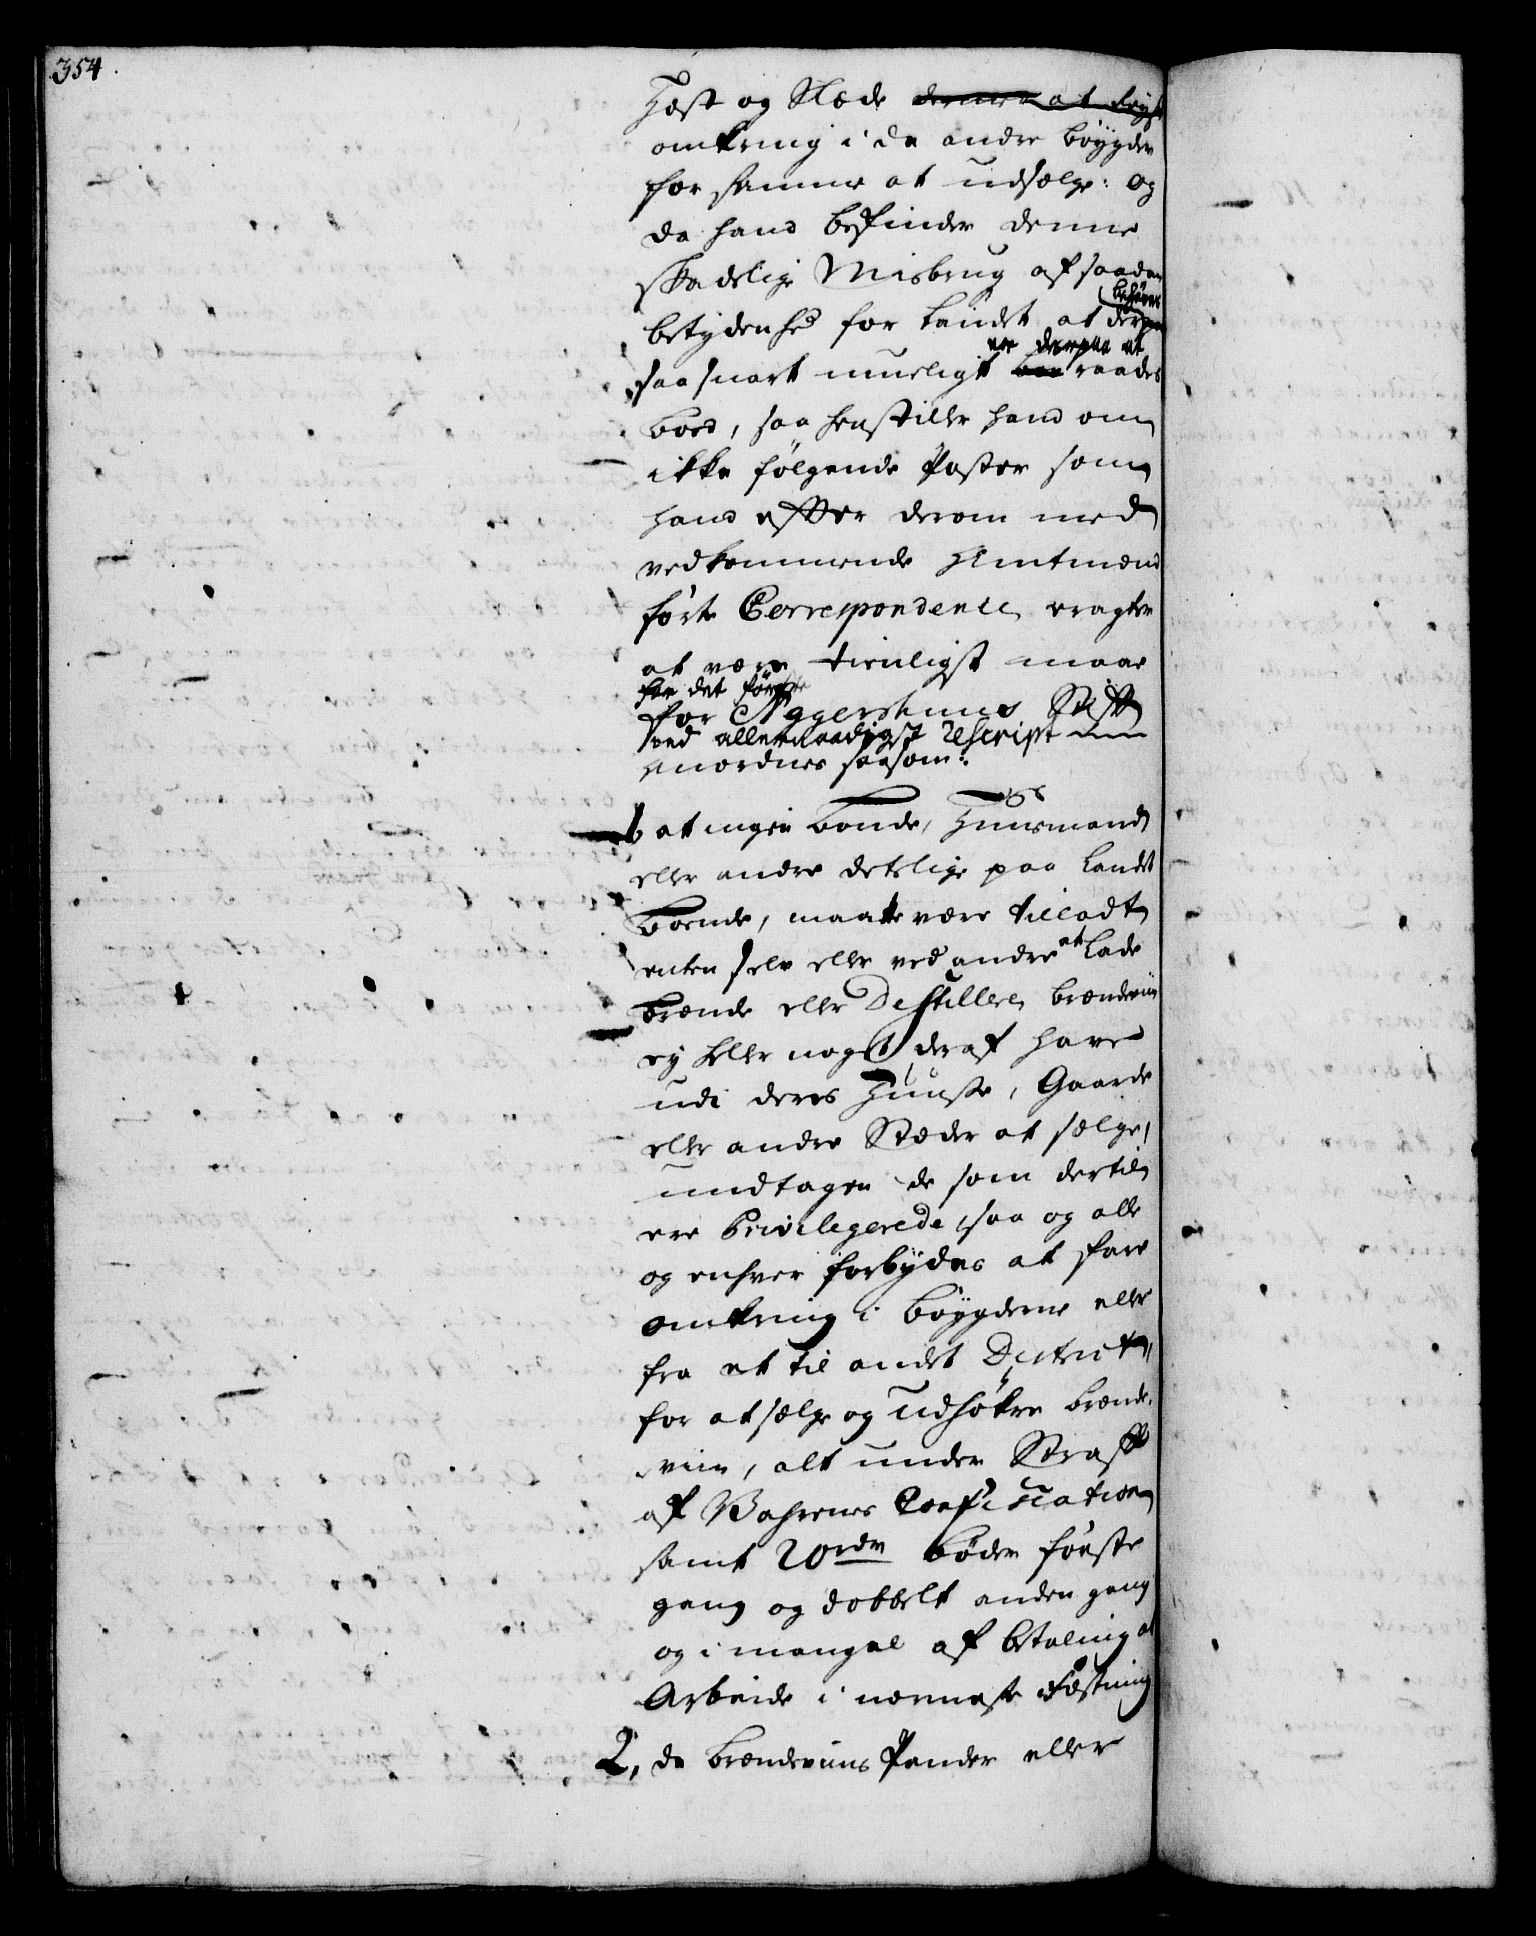 354
Hæst og Slæde dermed at fløye
omkring i de andre bøygder
for samme at udsælge: og
da hand befinder denne
skadelige Misbrug af saadan
betydenhed for Landet at der behøves
saa snart mueligt er derpaa at raades
bood, saa henstiller hand om
ikke følgende Poster som
hand efter derom med
vedkommende Amtmænd
førte Correspondence eragter
at være tienligst maae
for det første
for Aggershuus Stift
ved allernaadigst Rescript
anordnes saasom:
1 at ingen bonde, Huusmand
eller andre deslige paa Landet
boende, maatte være tilladt
enten selv eller ved andre at lade
brænde eller Destillere brændeviin
ey heller noget deraf have
udi deres Huuse, Gaarde
eller andre Stæder at sælge,
undtagen de som dertil
ere Privilegerede, saa og alle
og enhver forbydes at fare
omkring i bøygderne eller
fra et til andet District,
for at sælge og udhøkre brænde-
viin, alt under Straff
af Wahrenes Confiscation
samt 20 rdr bøder første
gang og dobbelt anden gang
og i mangel af betaling at
Arbeide i nærmeste Fæstning
2, de brændeviins Pander eller